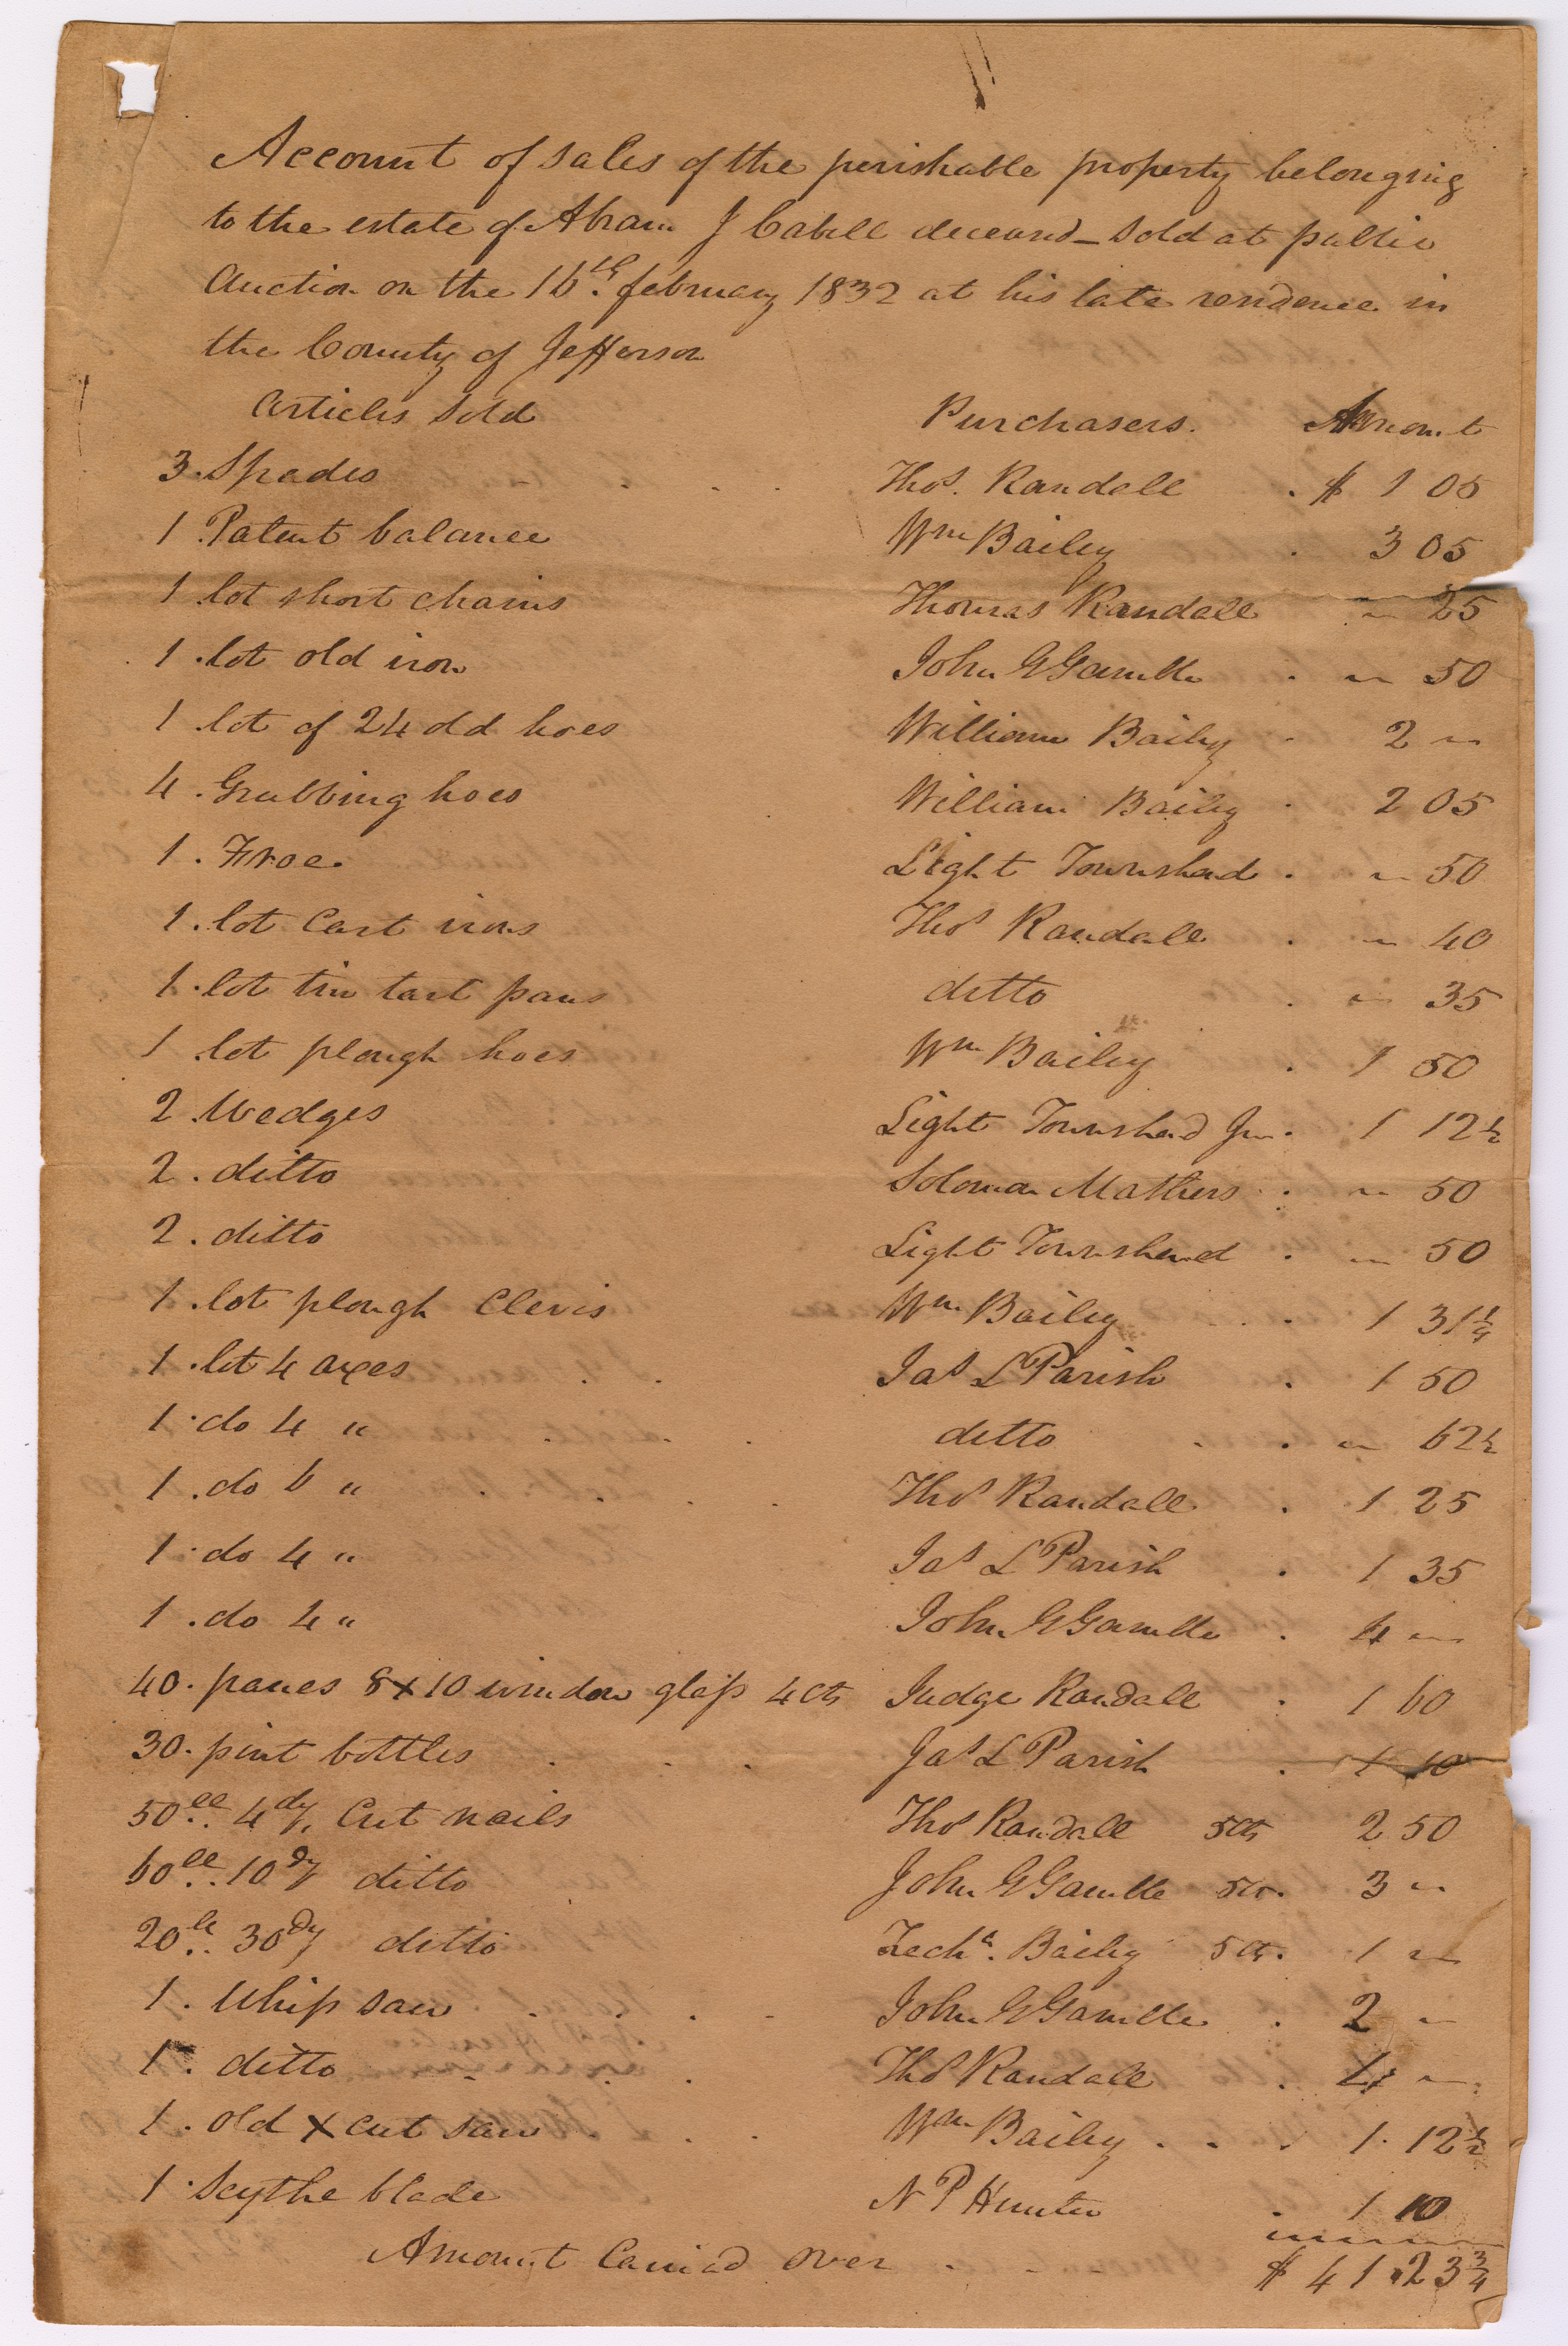 Account of sales of the perishable property belonging
to the estate of Abram J Cabell deceased - sold at public
Auction on the 16th. february 1832 at his late residence in
the County of Jefferson
Articles Sold Purchasers. Amount
3. Spades . . . Thos. Randall . $ 1 05
1. Patent balance Wm Bailey . 3 05
1. lot short chains Thomas Randall " 25
1. lot old iron John G Gamble . " 50
1. lot of 24 old hoes William Bailey . 2 "
4. Grubbing hoes William Bailey . 2 05
1. Froe. Light Townshend . " 50
1. lot Cart irons Thos Randall . " 40
1. lot tin tart pans ditto . " 35
1 lot plough hoes Wm Bailey . 1 50
2 Wedges Light Townshend Jun. 1 12½
2. ditto Solomon Mathers . " 50
2. ditto Light Townshend . " 50
1. lot plough Clevis Wm Bailey . . 1 31¼
1. lot 4 axes . . Jas L Parish . 1 50
1. do 4 " . . . ditto . . " 62½
1. do 6 " . . . . Thos Randall . 1 25
1. do 4 " Jas L Parish . 1 35
1. do 4 " John G Gamble . 4 "
40. panes 8x10 window glass 4 cts Judge Randall . 1 60
30. pint bottles . . . Jas L Parish . 1 10
50ll.. 4dy, Cut nails Thos Randall 5cts 2 50
60ll.. 10dy ditto John G Gamble 5cts. 3 "
20ll.. 30dy ditto Zecha. Bailey 5cts. 1 "
1. Whip saw . . . . John G Gamble . 2 "
1. ditto . . . Thos Randall . 4 "
1. old X cut saw . . . Wm Bailey . . . 1. 12½
1. Scythe blade N P Hunter . 1 10
Amount Carried over . . $ 41.23¾